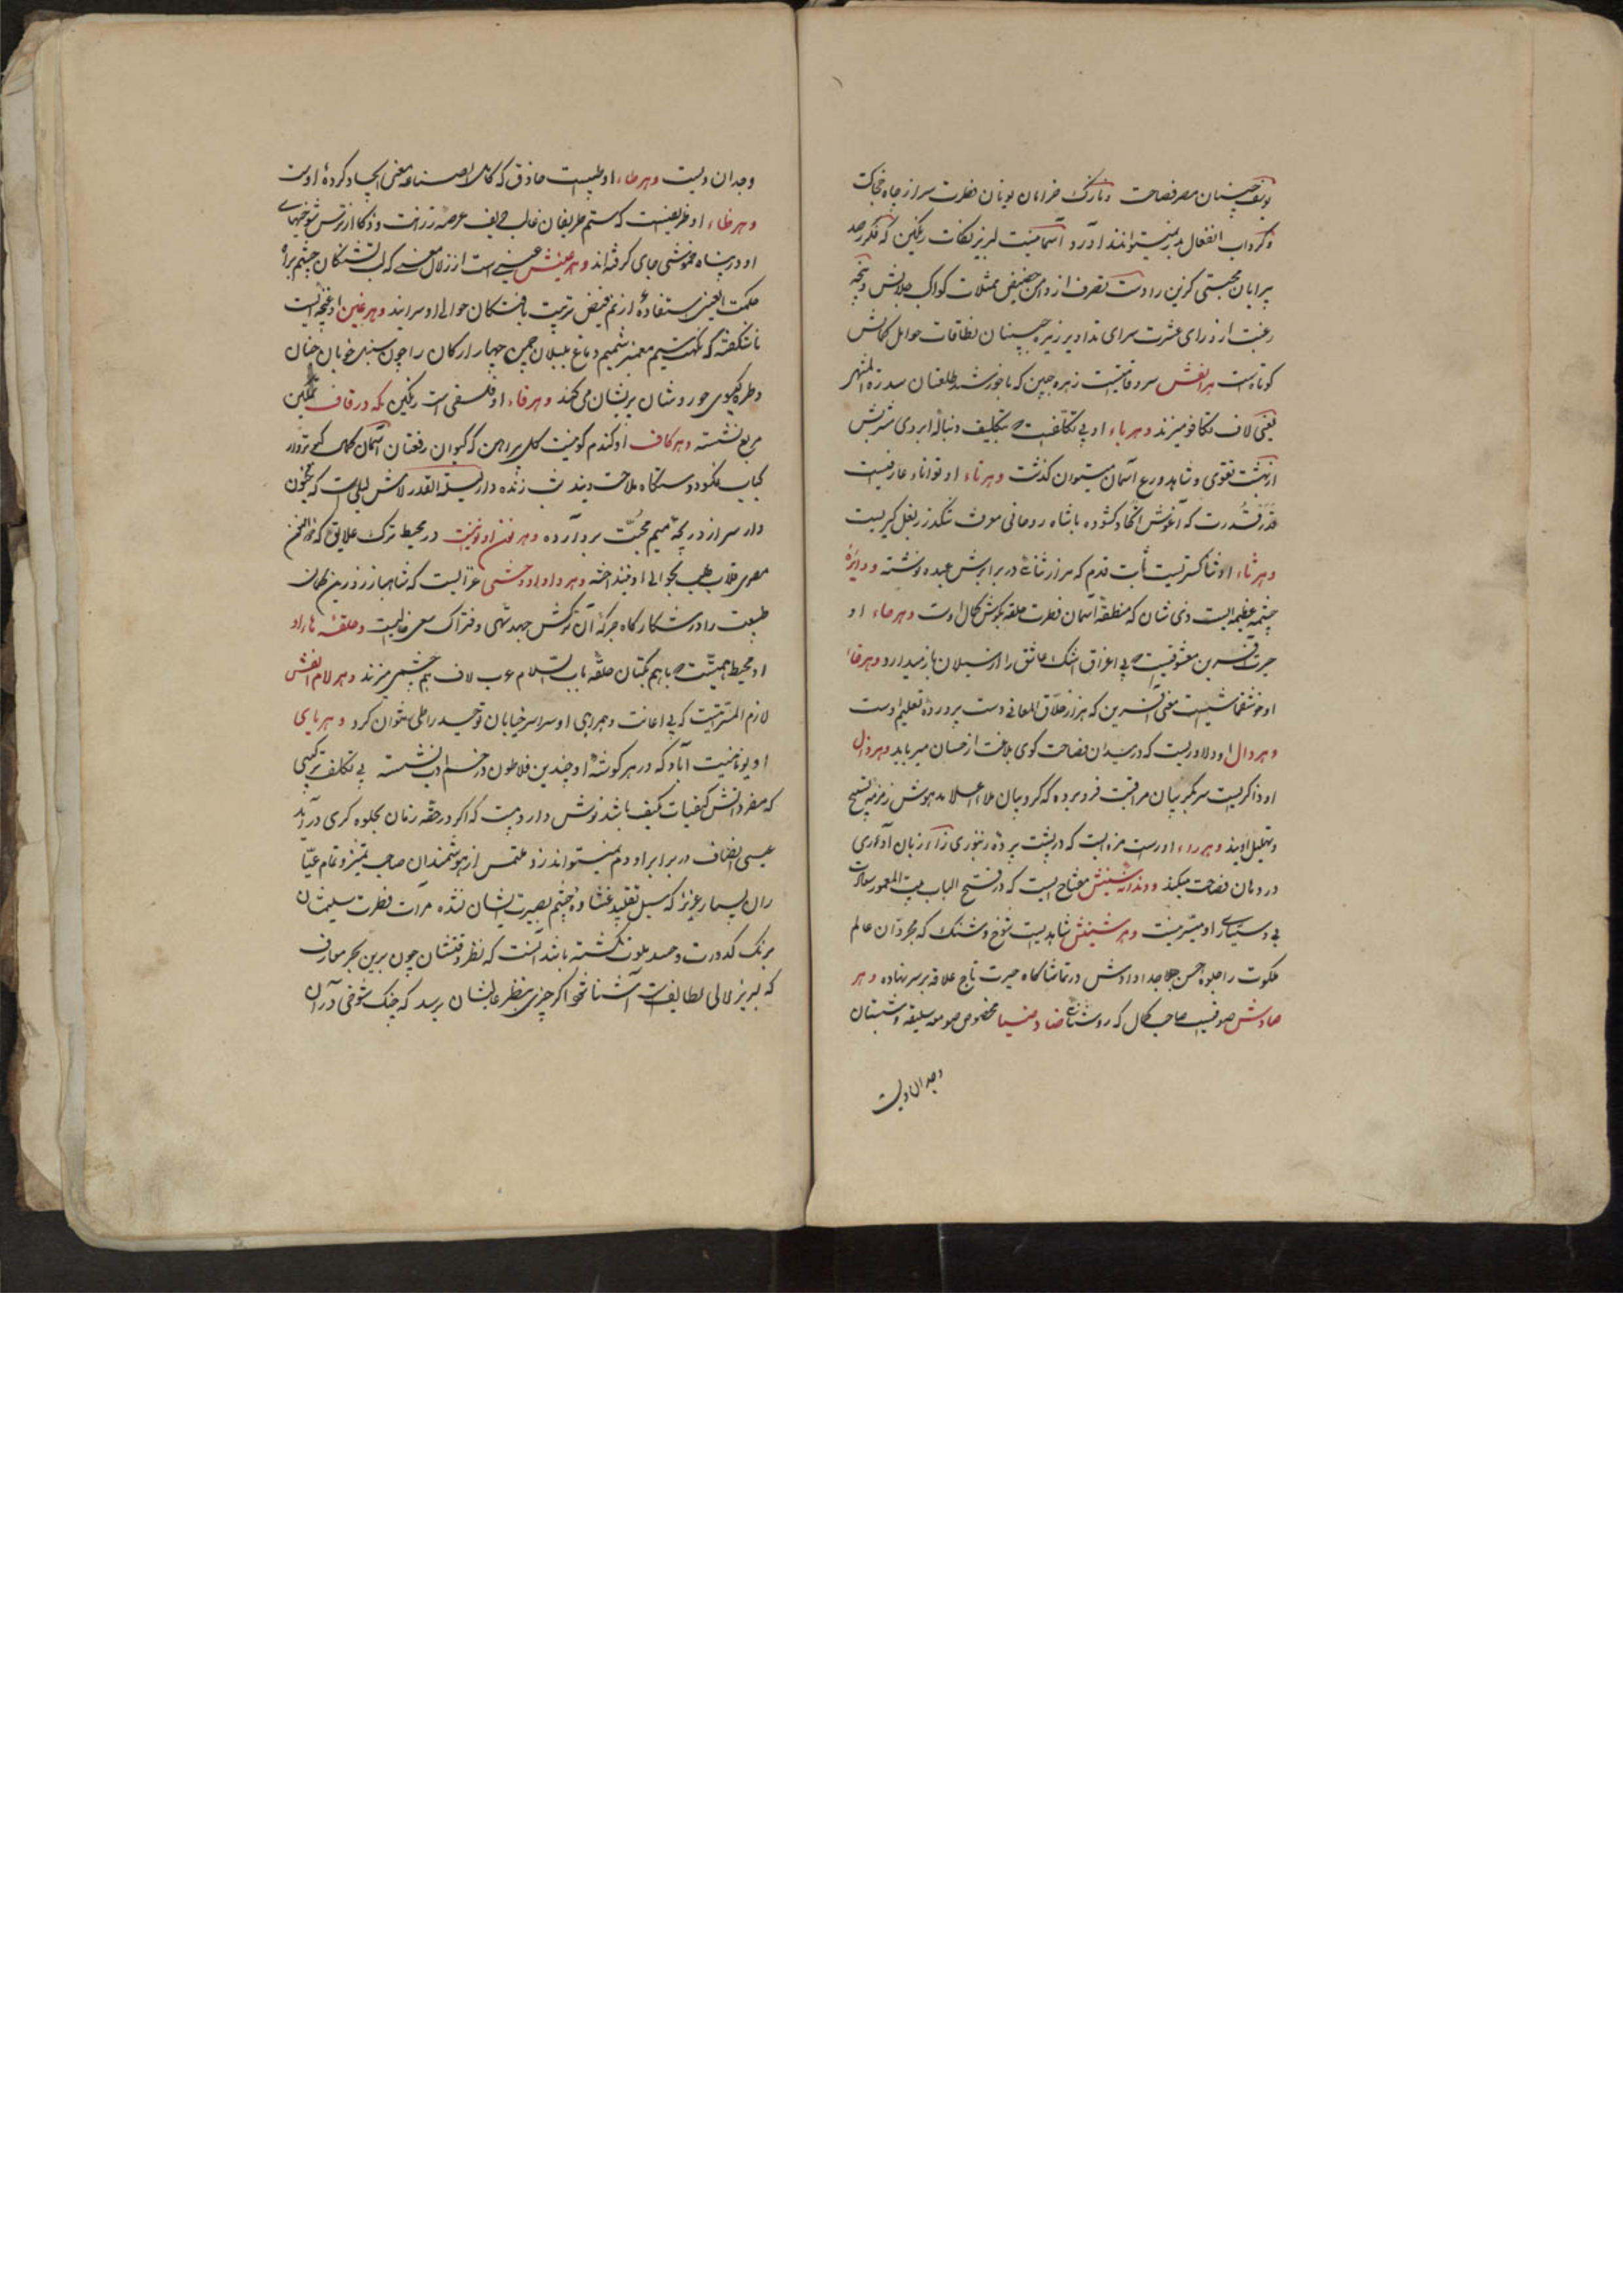 یوسف جبینان مصر فصاحت و نازک خرامان یونان فطرت سر از چاه خجالت
و گرداب انفعال بدر نمیتوانند آورد آسمانیست لبریز نکات رنگین که فکر رصد
پیرایان مجسطی گزین را دست تصرف از دامن حضیض ممثلات کواکب جلالش و پنجه
رغبت از ورای عشرت سرای تداویر زهره جبینان نطاقات حوامل کمالش
کوتاه است هر الفش سرو قامتیست زهره جبین که با خورشید طلعتان سدرة المنتهی
یعنی لاف تکافو میزند و هر باء او بی تکلفیست که بتکلیف دنباله ابروی شربش
از بهشت تقوی و شاهد ورع آسان میتوان گذشت و هر تاء او توانا عارفیست
قدر قدرت که آغوش اتحاد گشوده با شاهد روحانی صوت تنگ در بغل گیریست
و هر ثاء او ثناگستریست ثابت قدم که هزار ثنائی در برابرش عبده نوشته و دایرهٔ
چشمه عظیمه ایست ذی شان که منطقهٔ آسمان فطرت حلقه بگوش کمال اوست و هر حاء او
حیرت آفرین معشوقیست که بی اغراق اشک عاشق را از سیلان باز میدارد و هر خاء
او خوشقماشیست معنی آفرین که هزار خلاق المعانی دست پرورده تعلیم اوست
و هر دال او دلاوریست که در میدان فصاحت گوی بلاغت از حسان میرباید و هر ذال
او ذاکریست سر بگریبان مراقبت فرو برده که کروبیان ملاء اعلا مدهوش زمزمه تسبیح
و تهلیل اویند و هر راء او راست مزه ایست که در پشت پرده زنبوری زاء زبان آوری
در دهان فصاحت میکند و دندانه سینش مفتاح ایست که در فتح الباب بیت المعمور سعادت
بی دستیاری او میسر نیست و هر شینش شاهدیست شوخ و شنک که مجردان عالم
ملکوت را جلوهٔ حسن خداداداش در تماشاگاه حیرت تاج علاقه بر سر نهاده و هر
صادش صوفیست صاحب کمال که روشنائی ضاد ضیا مخصوص صومعه سلیقه و شبستان
وجدان ویست
وجدان ویست و هر طاء او طبیبیست حاذق که کامل الصناعه معنی ایجاد کردهٔ اوست
و هر ظاء او ظریفیست که ستم ظریفان غالب حریف عرصه رزانت و ذکا از ترس شوخیهای
او در پناه خموشی جای گرفته اند و هر عینش عینی است از زلال معنی که لب تشنگان چشم براه
حکمت العین استفاده از یم فیض تربیت یافتگان حوالی او سرایند و هر غین او غنچه ایست
ناشکفته که نکهت نسیم معنبر شمیم دماغ بلبلان چمن چهار ارکان را چون سنبل خوبان جنان
و طره گیسوی حوروشان پریشان میکند و هر فاء او فلسفی است رنگین که در قاف تمکین
مربع نشسته و هر کاف او گندم گونیست گل پیراهن که کیوان رفعتان آسمان کلاه
کباب نمکسود دستگاه ملاحت ویند شب زنده دار لیلة القدر لامش لیلی است که مجنون
وار سر از دریچهٔ میم محبت برآورده و هر نون او نونیست در محیط ترک علایق که ذوالنون
مصری قلاب طلب بحوالی او نینداخته و هر واو او وحشی غزالیست که شاهباز زرین کمان
طبیعت را در شکارگاه جرگهٔ آن ترکش جهد تهی و فتراک سعی خالیست و حلقهٔ هاء او
او محیط همیشت که با هم یکتان حلقه باب السلام عرب لاف هم چشمی میزند و هر لام الفش
لازم المسرتیست که بی اعانت و همراهی او سراسر خیابان توحید را طی نتوان کرد و هر یای
او یونانیت آباد که در هر گوشهٔ او چندین فلاطون در خم ادب نشسته بی تکلف ترکیبی
که مفرداتش کیفیات کیف باشد نوش دارویست که اگر در حقه زمان بجلوه گری درآید
عیسی انصاف در برابر او دم نمیتواند زد ملتمس از هوشمندان صاحب تمیز و تمام عیا
ران بسیار عزیز که سبل تقلید غشاوهٔ چشم بصیرت ایشان نشده مرآت فطرت سلیمشان
برنگ کدورت و حسد ملوث نگشته باشد آنست که نظر دقتشان چون برین بحر معارف
که لبریز لآلی لطایفست آشنا شود اگر چیزی بنظر عالیشان برسد که چنک شوخی در آن